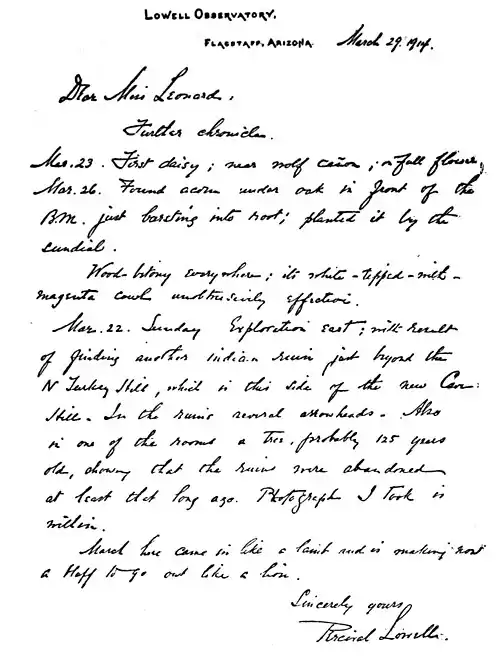 LOWELL OBSERVATORY,
FLAGSTAFF, ARIZONA. March 29. 1914.
Dear Miss Leonard,
Further chronicle.
Mar. 23. First daisy; near wolf cañon; in full flower,
Mar. 26. Found acorn under oak in front of the
B.M. just bursting into root; planted it by the
sundial.
Wood-betony everywhere; its white-tipped-with-
magenta cowls unobtrusively effective.
Mar. 22. Sunday Exploration east; with result
of finding another indian ruin just beyond the
N Turkey Hill, which is this side of the new
Hill. In the ruins several arrowheads. Also
in one of the rooms a tree, probably 125 years
old, showing that the ruins were abandoned
at least that long ago. Photograph I took is
within.
March here came in like a lamb and is making
a to go out like a lion.
Sincerely yours
Percival Lowell.